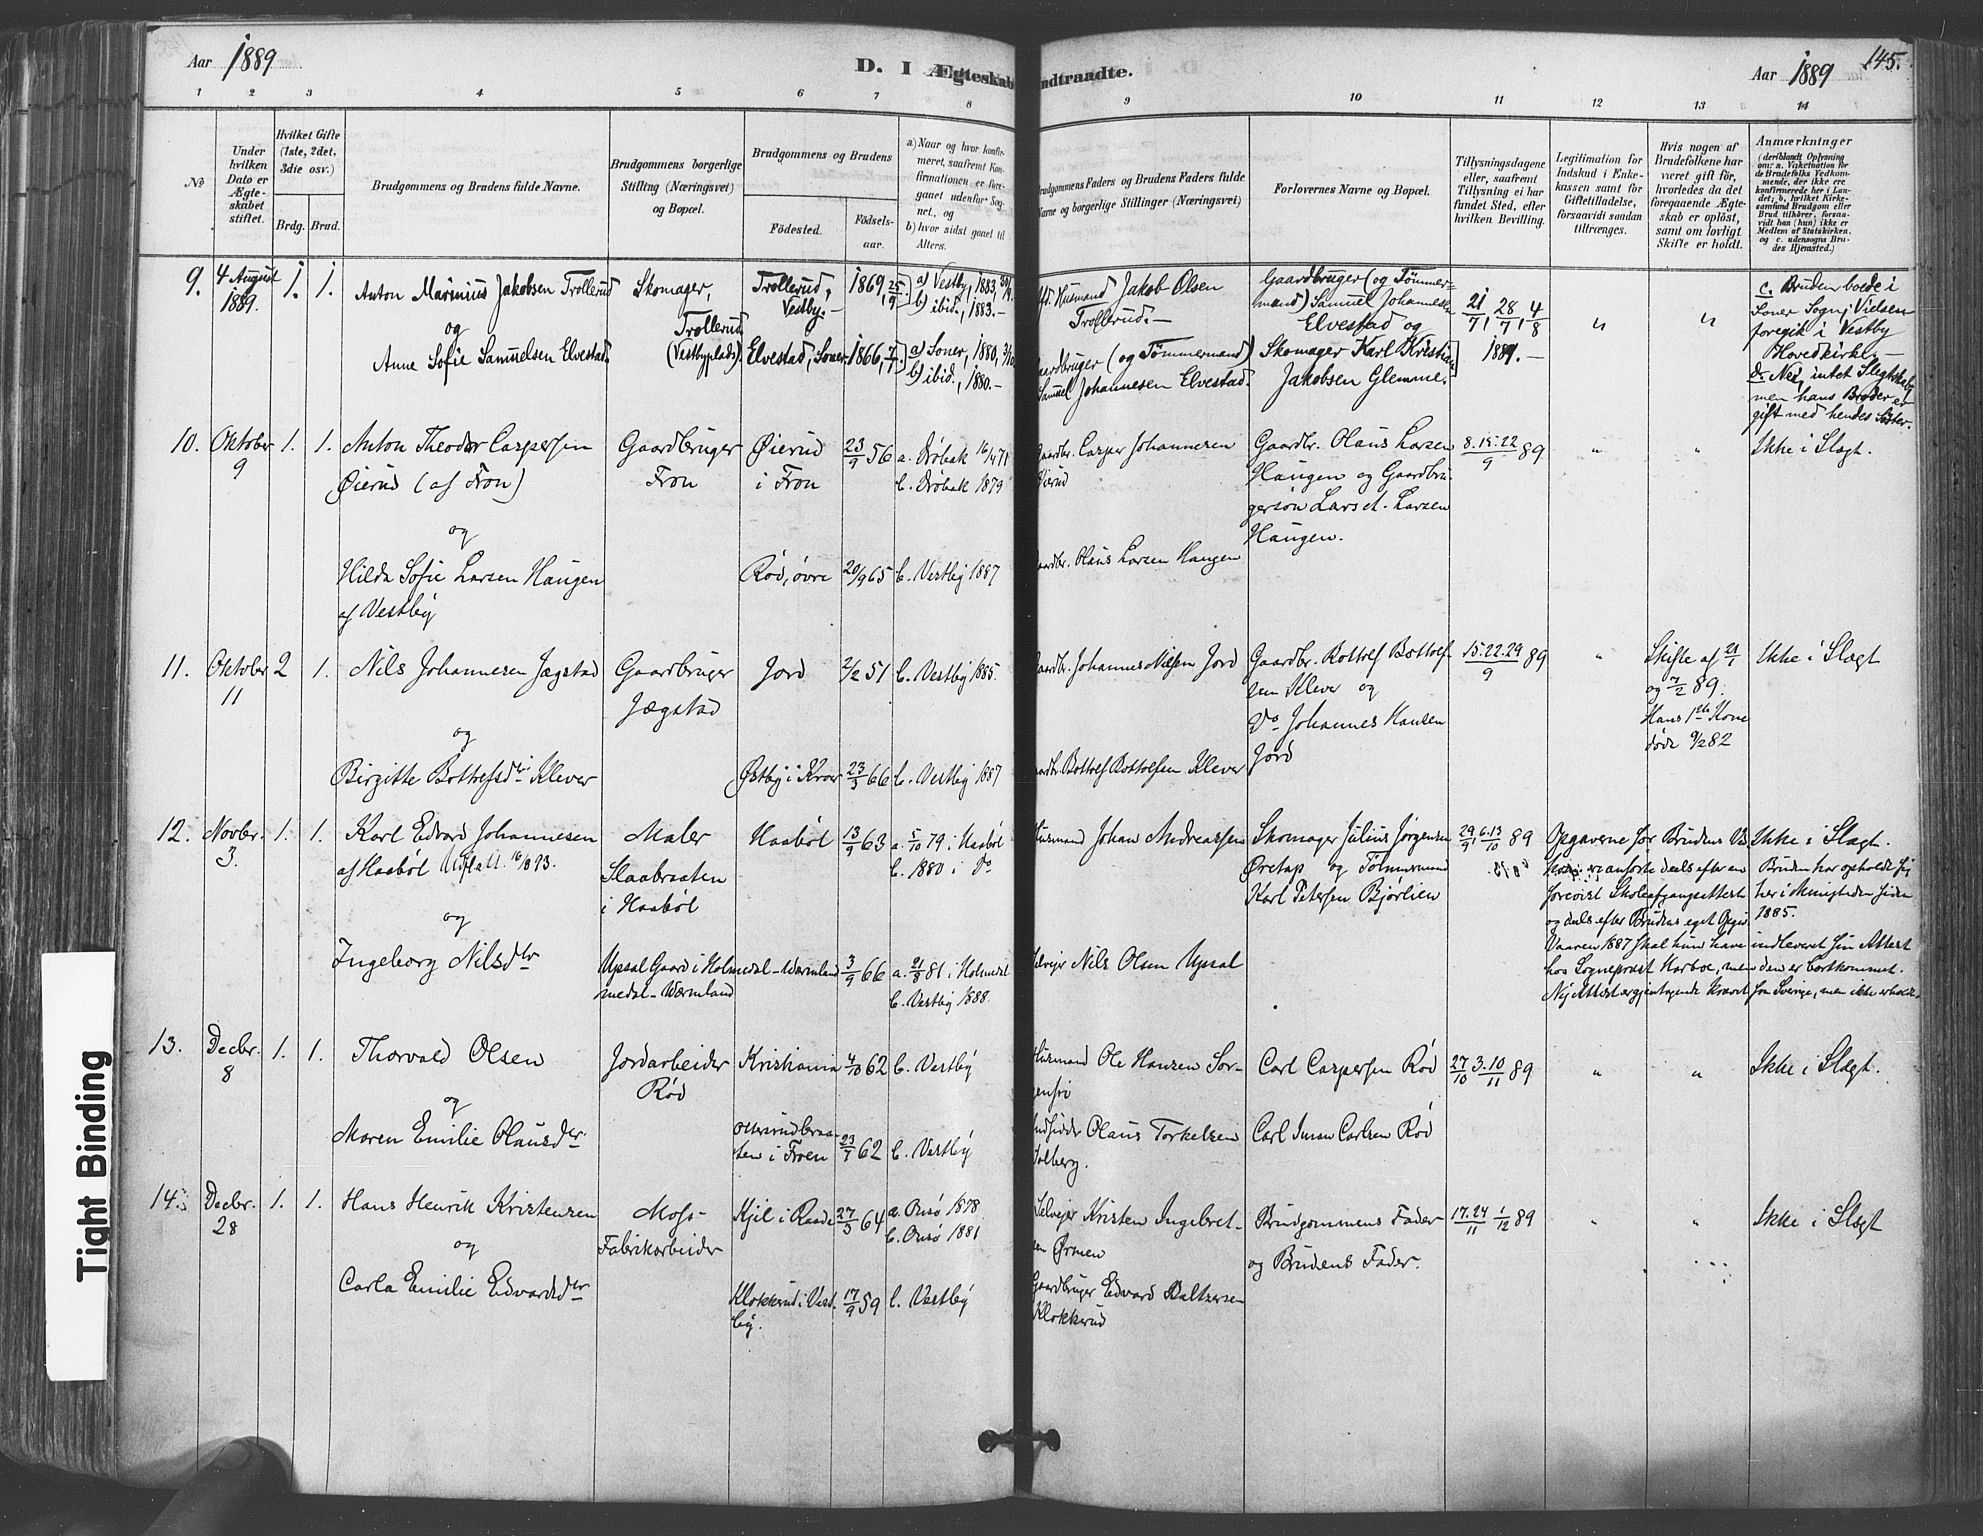 Aar 1889
D. I Ægteskab
indtraadte.
Aar 1889
145.
1 2 3 4 5 6 7 8 9 10 11 12 13 14
No
Under
hvilken
Dato er
Ægte-
skabet
stiftet.
Hvilket Gifte
(1ste, 2det,
3die osv.)
Brdg. Brud.
Brudgommens og Brudens fulde Navne.
Brudgommens borgerlige
Stilling (Næringsvei)
og Bopæl.
Brudgommens og Brudens
Fødested.
Fødsels-
aar.
a) Naar og hvor konfir-
meret, saafremt Kon-
firmationen er fore-
gaaet udenfor Sog-
net, og
b) hvor sidst gaaet til
Alters.
Brudgommens Faders og Brudens Faders fulde
Navne og borgerlige Stillinger (Næringsvei)
Forlovernes Navne og Bopæl.
Tillysningsdagene
eller, saafremt
Tillysning ei har
fundet Sted, efter
hvilken Bevilling.
Legitimation for
Indskud i Enke-
kassen samt for
Giftetilladelse,
forsaavidt saadan
tiltrænges.
Hvis nogen af
Brudefolkene har
været gift før,
hvorledes da det
foregaaende Ægte-
skab er opløst,
samt om lovligt
Skifte er holdt.
Anmærkninger
(deriblandt Oplysning
om: a. Vakcination for
de Brudefolks Vedkom-
mende, der ikke ere
konfirmerede her i Lan-
det; b. hvilket Kirke-
samfund Brudgom eller
Brud tilhører, forsaa-
vidt han (hun) ikke er
Medlem af Statskirken,
og c. udensogns Bru-
des Hjemsted.)
9. 4 August 1889. 1. 1.
Anton Marinius Jakobsen Trollerud
og
Anne Sofie Samuelsen Elvestad.
Skomager,
Trollerud
(Vestbyplads).
Trollerud,
Vestby.-
Elvestad, Soner.
1869, 25/9.
1866, 7/7.
a) Vestby, 1883,
b) ibid., 1883.-
a) Soner, 1880,
b) ibid., 1880.-
Husmand Jakob Olsen
Trollerud.-
Gaardbruger (og Tømmermand)
Samuel Johannesen Elvestad.
Gaardbruger (og Tømmer-
mand) Samuel Johannesen
Elvestad og
Skomager Karl Kristian
Jakobsen Glemme.
21/7, 28/7, 4/8
1889.-
" "
c. Bruden boede i
Soner Sogn; Vielsen
foregik i Vestby
Hovedkirke.-
d. Nei, intet Slegtskab,
men hans Broder er
gift med hendes Søster.
10. Oktober 9 1. 1.
Anton Theodor Caspersen
Øierud (af Fron)
og
Hilda Sofie Larsen Haugen
af Vestby
Gaardbruger
Fron
Øierud
i Fron
Rød, øvre
23/9 56
20/9 65
a. Drøbak 16/4 71
b. Drøbak 1879
b. Vestby 1887
Gaardbr. Casper Johannesen
Øierud
Gaardbr. Olaus Larsen Haugen
Gaardbr. Olaus Larsen
Haugen og Gaardbru-
gersøn Lars A. Larsen
Haugen.
8.15.22/9 89
" "
Ikke i Slægt.
11. Oktober 11 2 1.
Nils Johannesen Jægstad
og
Birgitte Bottolfsdtr Klever
Gaardbruger
Jægstad
Jord
Østby i Kroer
2/2 51
23/3 66
b. Vestby 1885.
b. Vestby 1887
Gaardbr. Johannes Nilsen Jord
Gaardbr. Bottolf Bottolfsen Klever
Gaardbr. Bottolf Bottolf-
sen Klever og
Do Johannes Hansen
Jord
15.22.29/9 89
"
Skifte af 21/1
og 7/2 89.
Hans 1ste Kone
døde 9/2 82
Ikke i Slægt
12. Novbr. 3. 1. 1.
Karl Edvard Johannesen
af Haabøl Utfl. att. 16/8 93.
og
Ingeborg Nilsdtr
Maler
Slaabraaten
i Haabøl
Upsal Gaard i Hol-
medal-Wærmland
Haabøl
medal-Wærmland
13/9 63
3/9 66
a. 5/10 79 i Haabøl
b. 1880 i Do
a. 21/8 81 i Holmedal
b. Vestby 1888.
Husmand Johan Andreassen
Selveier Nils Olsen Upsal
Skomager Julius Jørgensen
Øretap og Tømmermand
Karl Petersen Bjørlien
29/9, 6.13/10 89
Opgaverne for Brudens Ved-
kom. er anførte deels efter en
forevist Skoleafgangsattest
og deels efter Brudens eget Opgiv.
Vaaren 1887 skal hun have indleveret sin Attest
hos Sogneprest Harboe, men den er bortkommet.
Ny Attest er gjentagende krævet fra Sverige, men ikke erholdt.
Ikke i Slægt.
Bruden har opholdt sig
her i Menigheden siden
1885.
13. Decbr. 8 1. 1.
Thorvald Olsen
og
Maren Emilie Olausdtr.
Jordarbeider
Rød
Kristiania
Ottersrudbraa-
ten i Froen
4/10 62
23/7 62
b. Vestby
b. Vestby
Husmand Ole Hansen Sor-
genfri
Indsidder Olaus Torkelsen
Solberg.
Carl Caspersen Rød
Carl Iman Carlsen Rød
27/10 3.10/11 89
" "
Ikke i Slægt.
14. Decbr. 28 1. 1.
Hans Henrik Kristensen
og
Carla Emilie Edvardsdtr
Moss-
Fabrikarbeider
Kjil i Raade
Klokkerud i Vest-
by.
27/3 64
17/9 59
a. Onsø 1878
b. Onsø 1881
b. Vestby
Selveier Kristen Ingebret-
sen Ørmen
Gaardbruger Edvard Baltzersen
Klokkerud
Brudgommens Fader
og Brudens Fader.
17.24/11 1/12 89
" "
Ikke i Slægt
Tight Binding